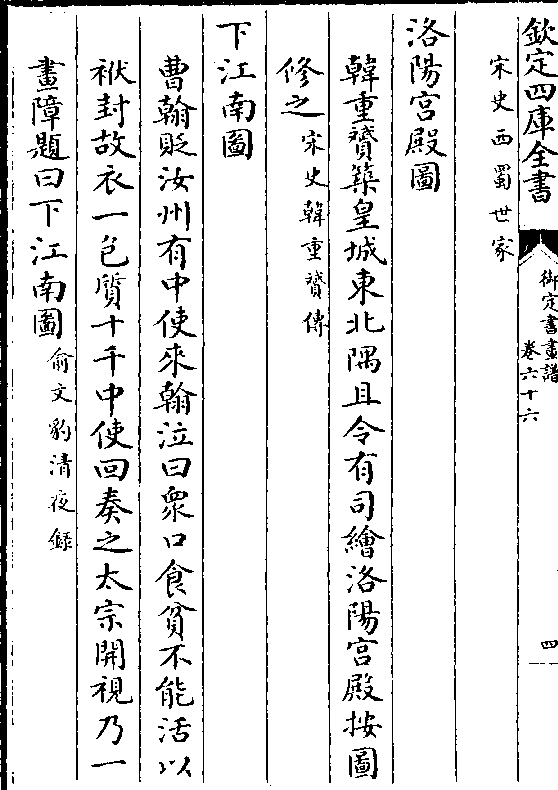 欽定四庫全書
御定書畫譜
卷六十六
四
宋史西蜀世家
洛陽宮殿圖
韓重贇築皇城東北隅且令有司繪洛陽宮殿按圖
修之宋史韓重贇傳
下江南圖
曹翰貶汝州有中使來翰泣曰衆口食貧不能活以
袱封故衣一色質十千中使回奏之太宗開視乃一
畫障題曰下江南圖俞文豹清夜錄